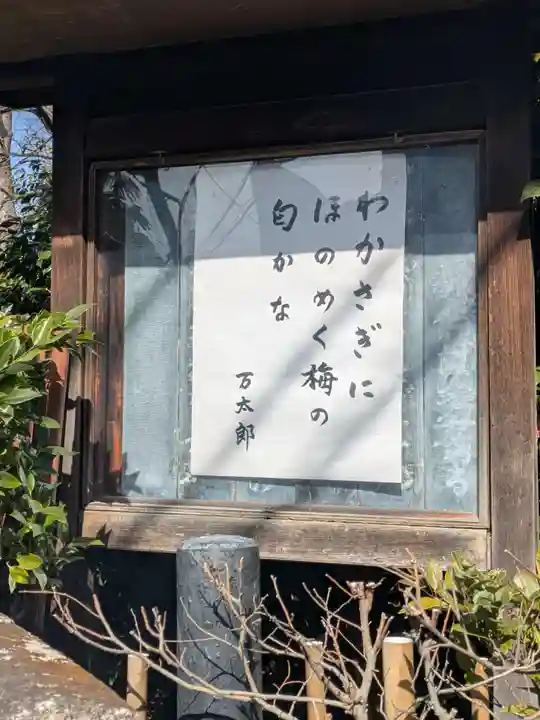 わかさぎに
ほのめく梅の
匂かな
万太郎